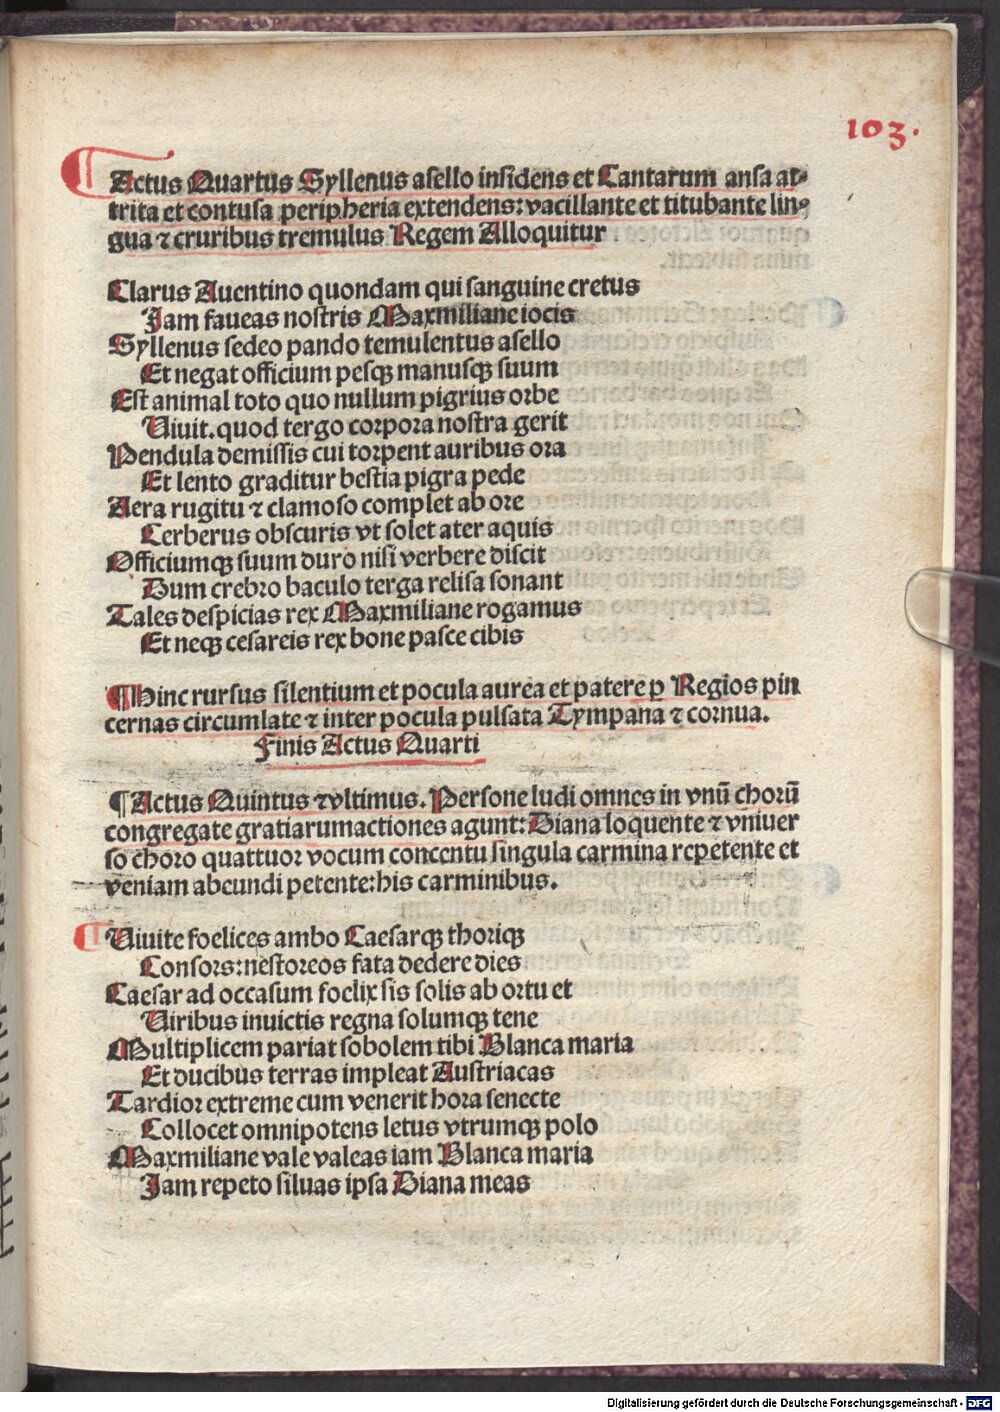 103.
Actus Quartus Syllenus asello insidens et Cantarum ansa at-
trita et contusa peripheria extendens: vacillante et titubante lin-
gua ⁊ cruribus tremulus Regem Alloquitur
Clarus Auentino quondam qui sanguine cretus
Jam faueas nostris Maxmiliane iocis
Syllenus sedeo pando temulentus asello
Et negat officium pesqꝫ manusqꝫ suum
Est animal toto quo nullum pigrius orbe
Uiuit. quod tergo corpora nostra gerit
Pendula demissis cui torpent auribus ora
Et lento graditur bestia pigra pede
Aera rugitu ⁊ clamoso complet ab ore
Cerberus obscuris vt solet ater aquis
Officiumqꝫ suum duro nisi verbere discit
Dum crebro baculo terga relisa sonant
Tales despicias rex Maxmiliane rogamus
Et neqꝫ cesareis rex bone pasce cibis
¶ Hinc rursus silentium et pocula aurea et patere ꝑ Regios pin
cernas circumlate ⁊ inter pocula pulsata Tympana ⁊ cornua.
Finis Actus Quarti
¶ Actus Quintus ⁊ vltimus. Persone ludi omnes in vnū chorū
congregate gratiarumactiones agunt: Diana loquente ⁊ vniuer
so choro quattuor vocum concentu singula carmina repetente et
veniam abeundi petente: his carminibus.
Uiuite foelices ambo Caesarqꝫ thoriqꝫ
Consors: nestoreos fata dedere dies
Caesar ad occasum foelix sis solis ab ortu et
Uiribus inuictis regna solumqꝫ tene
Multiplicem pariat sobolem tibi Blanca maria
Et ducibus terras impleat Austriacas
Tardior extreme cum venerit hora senecte
Collocet omnipotens letus vtrumqꝫ polo
Maxmiliane vale valeas iam Blanca maria
Jam repeto siluas ipsa Diana meas
Digitalisierung gefördert durch die Deutsche Forschungsgemeinschaft - DFG